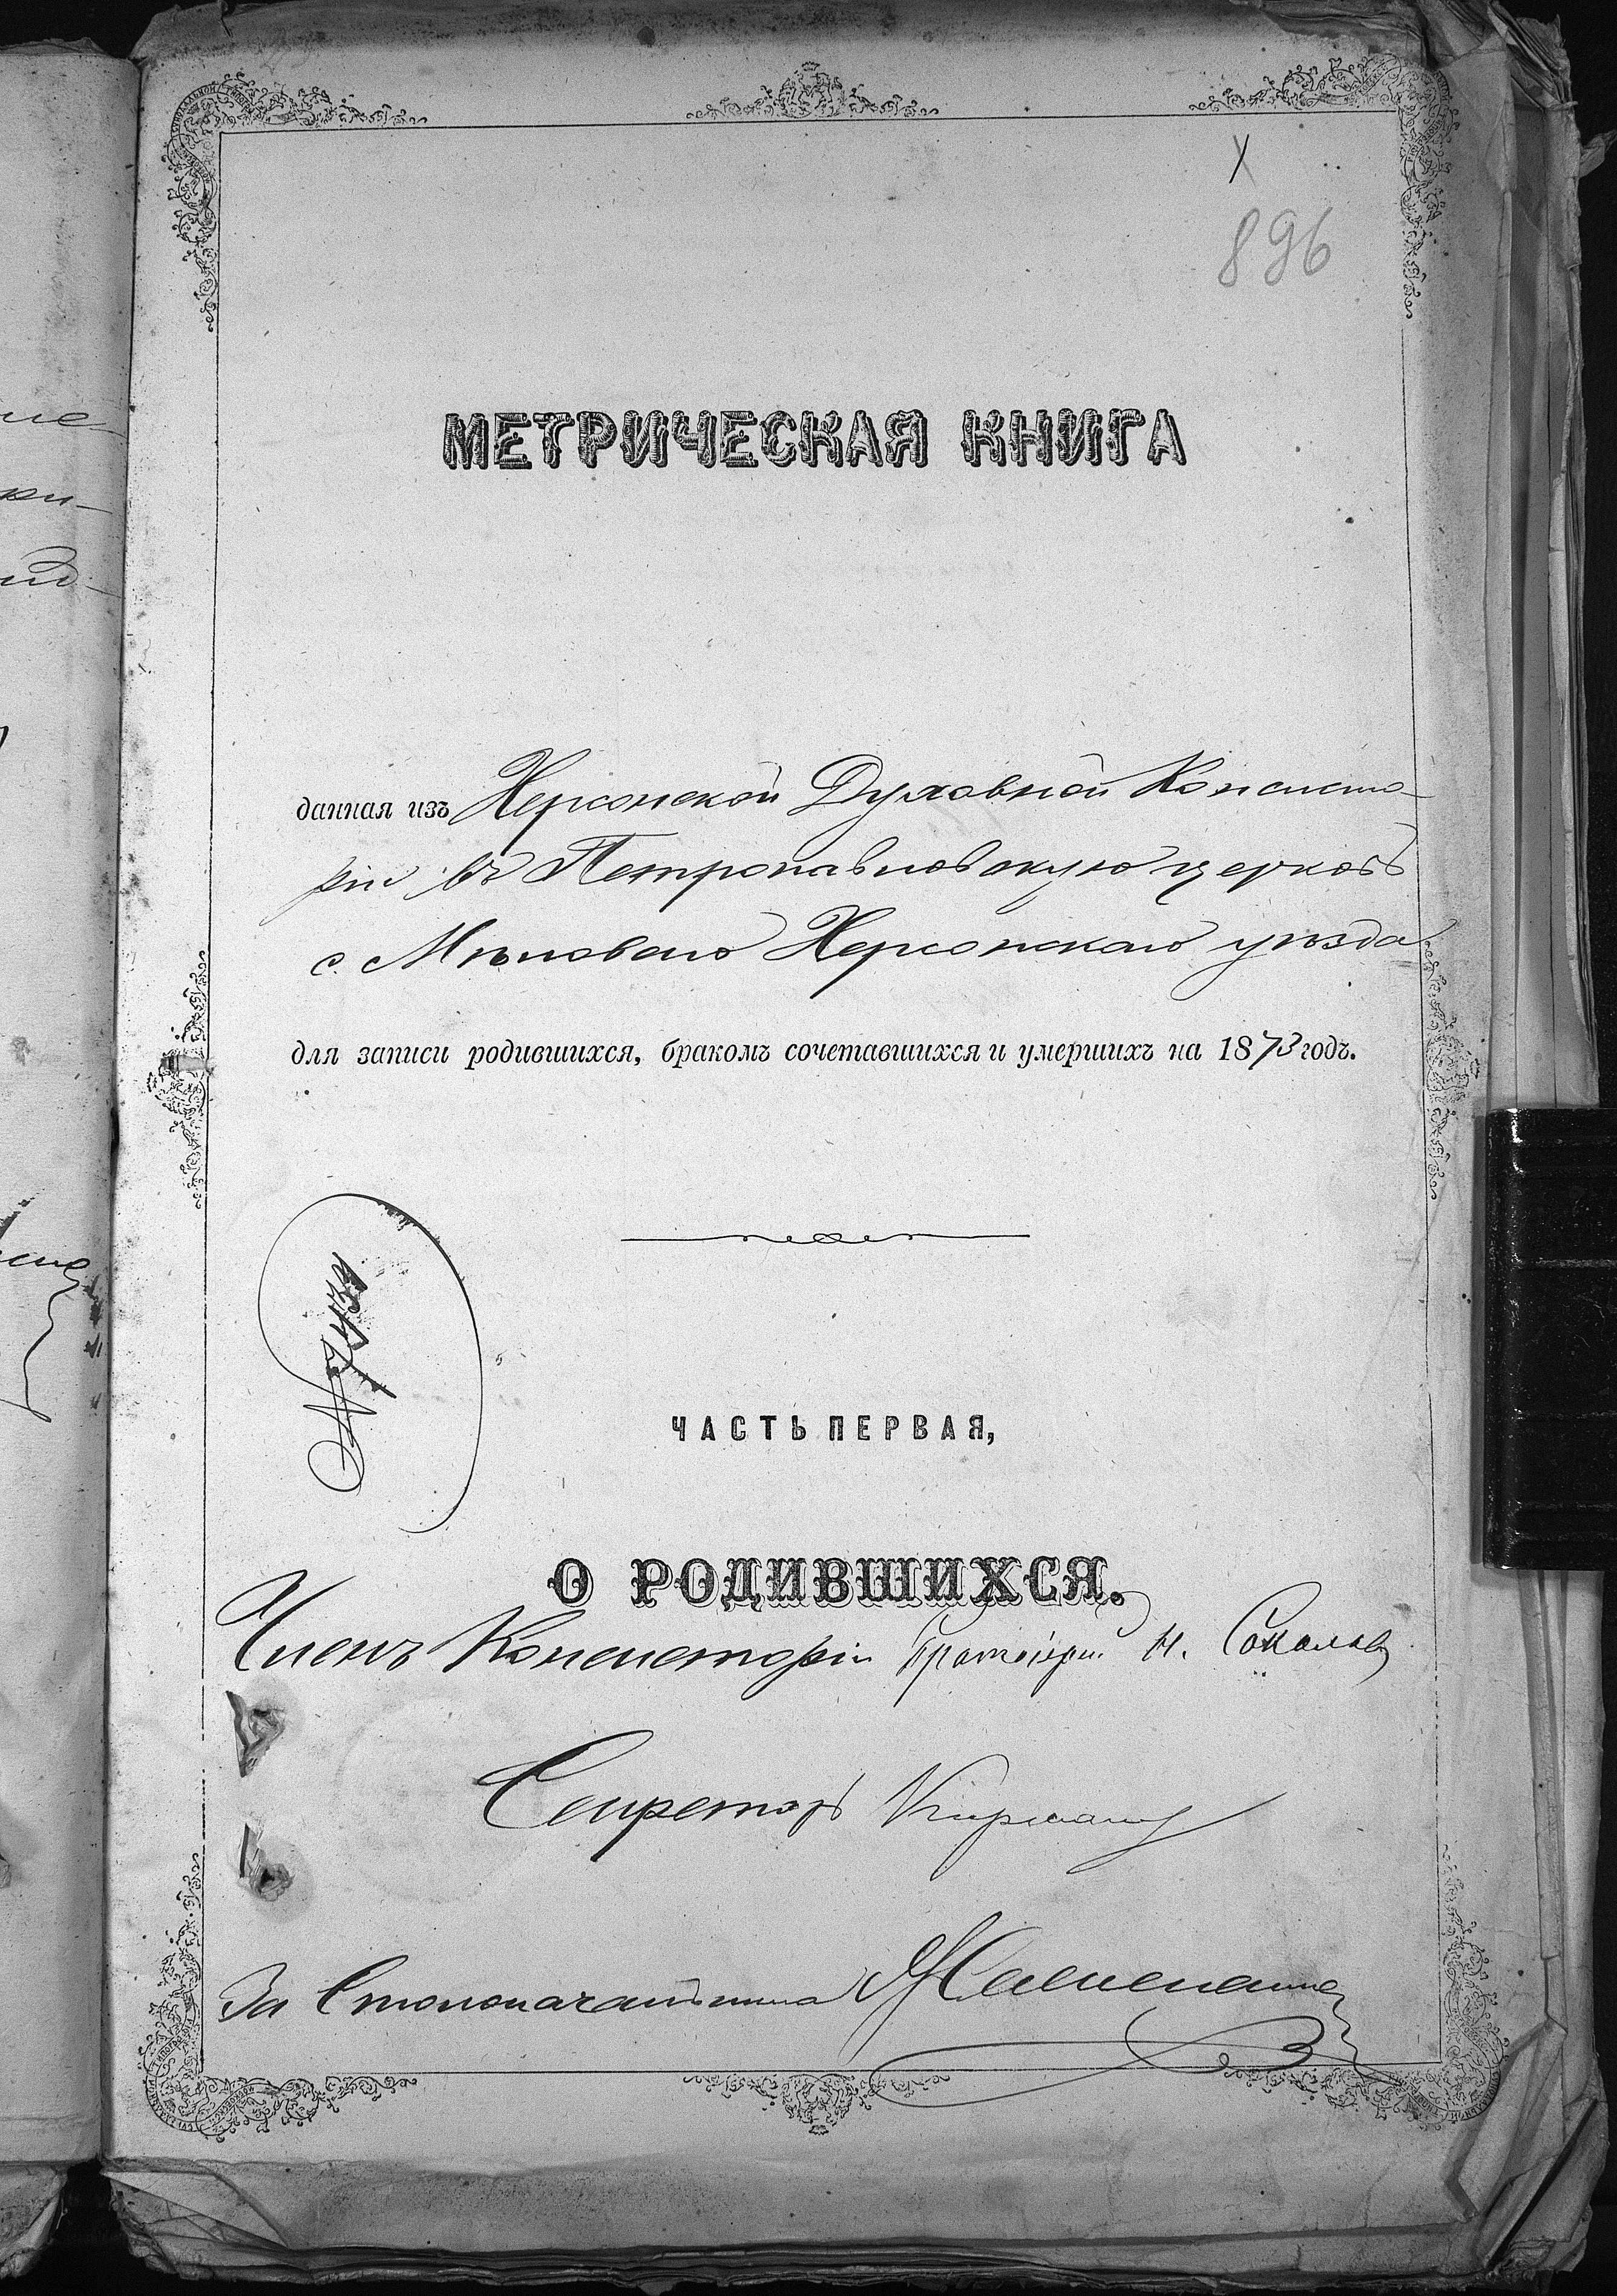 896
МЕТРИЧЕСКАЯ КНИГА
данная изъ Херсонской Духовной Консисто-
ріи въ Петропавловскую церковь
с. Мѣловаго Херсонскаго уѣзда
для записи родившихся, бракомъ сочетавшихся и умершихъ на 1873 годъ.
ЧАСТЬ ПЕРВАЯ,
О РОДИВШИХСЯ.
Членъ Консисторіи Протоіерей Н. Соколов
Секретарь
За Столоначальника